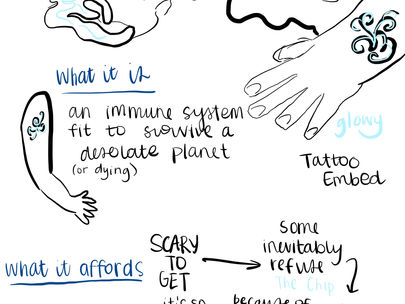 what it is
an immune system
fit to survive a
desolate planet
(or dying)
glowy
Tattoo
Embed
what it affords
SCARY
TO
GET
it's so
some
inevitably
refuse
The Chip
because of